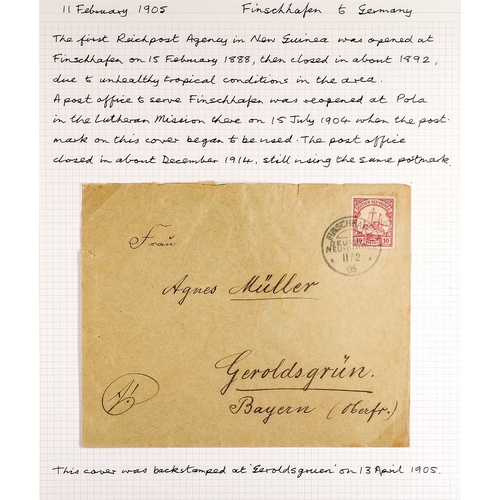 11 February 1905 Finschhafen to Germany
The first Reichpost Agency in New Guinea was opened at
Finschhafen on 15 February 1888, then closed in about 1892,
due to unhealthy tropical conditions in the area.
A post office to serve Finschhafen was reopened at Pola
in the Lutheran Mission there on 15 July 1904 when the post
mark on this cover began to be used. The post office
closed in about December 1914, still using the same postmark.
10 10
FINSCHHAFEN
11/2
05
Frau
Agnes Müller
Geroldsgrün.
Bayern (Oberfr.)
This cover was backstamped at 'Geroldsgruen' on 13 April 1905.